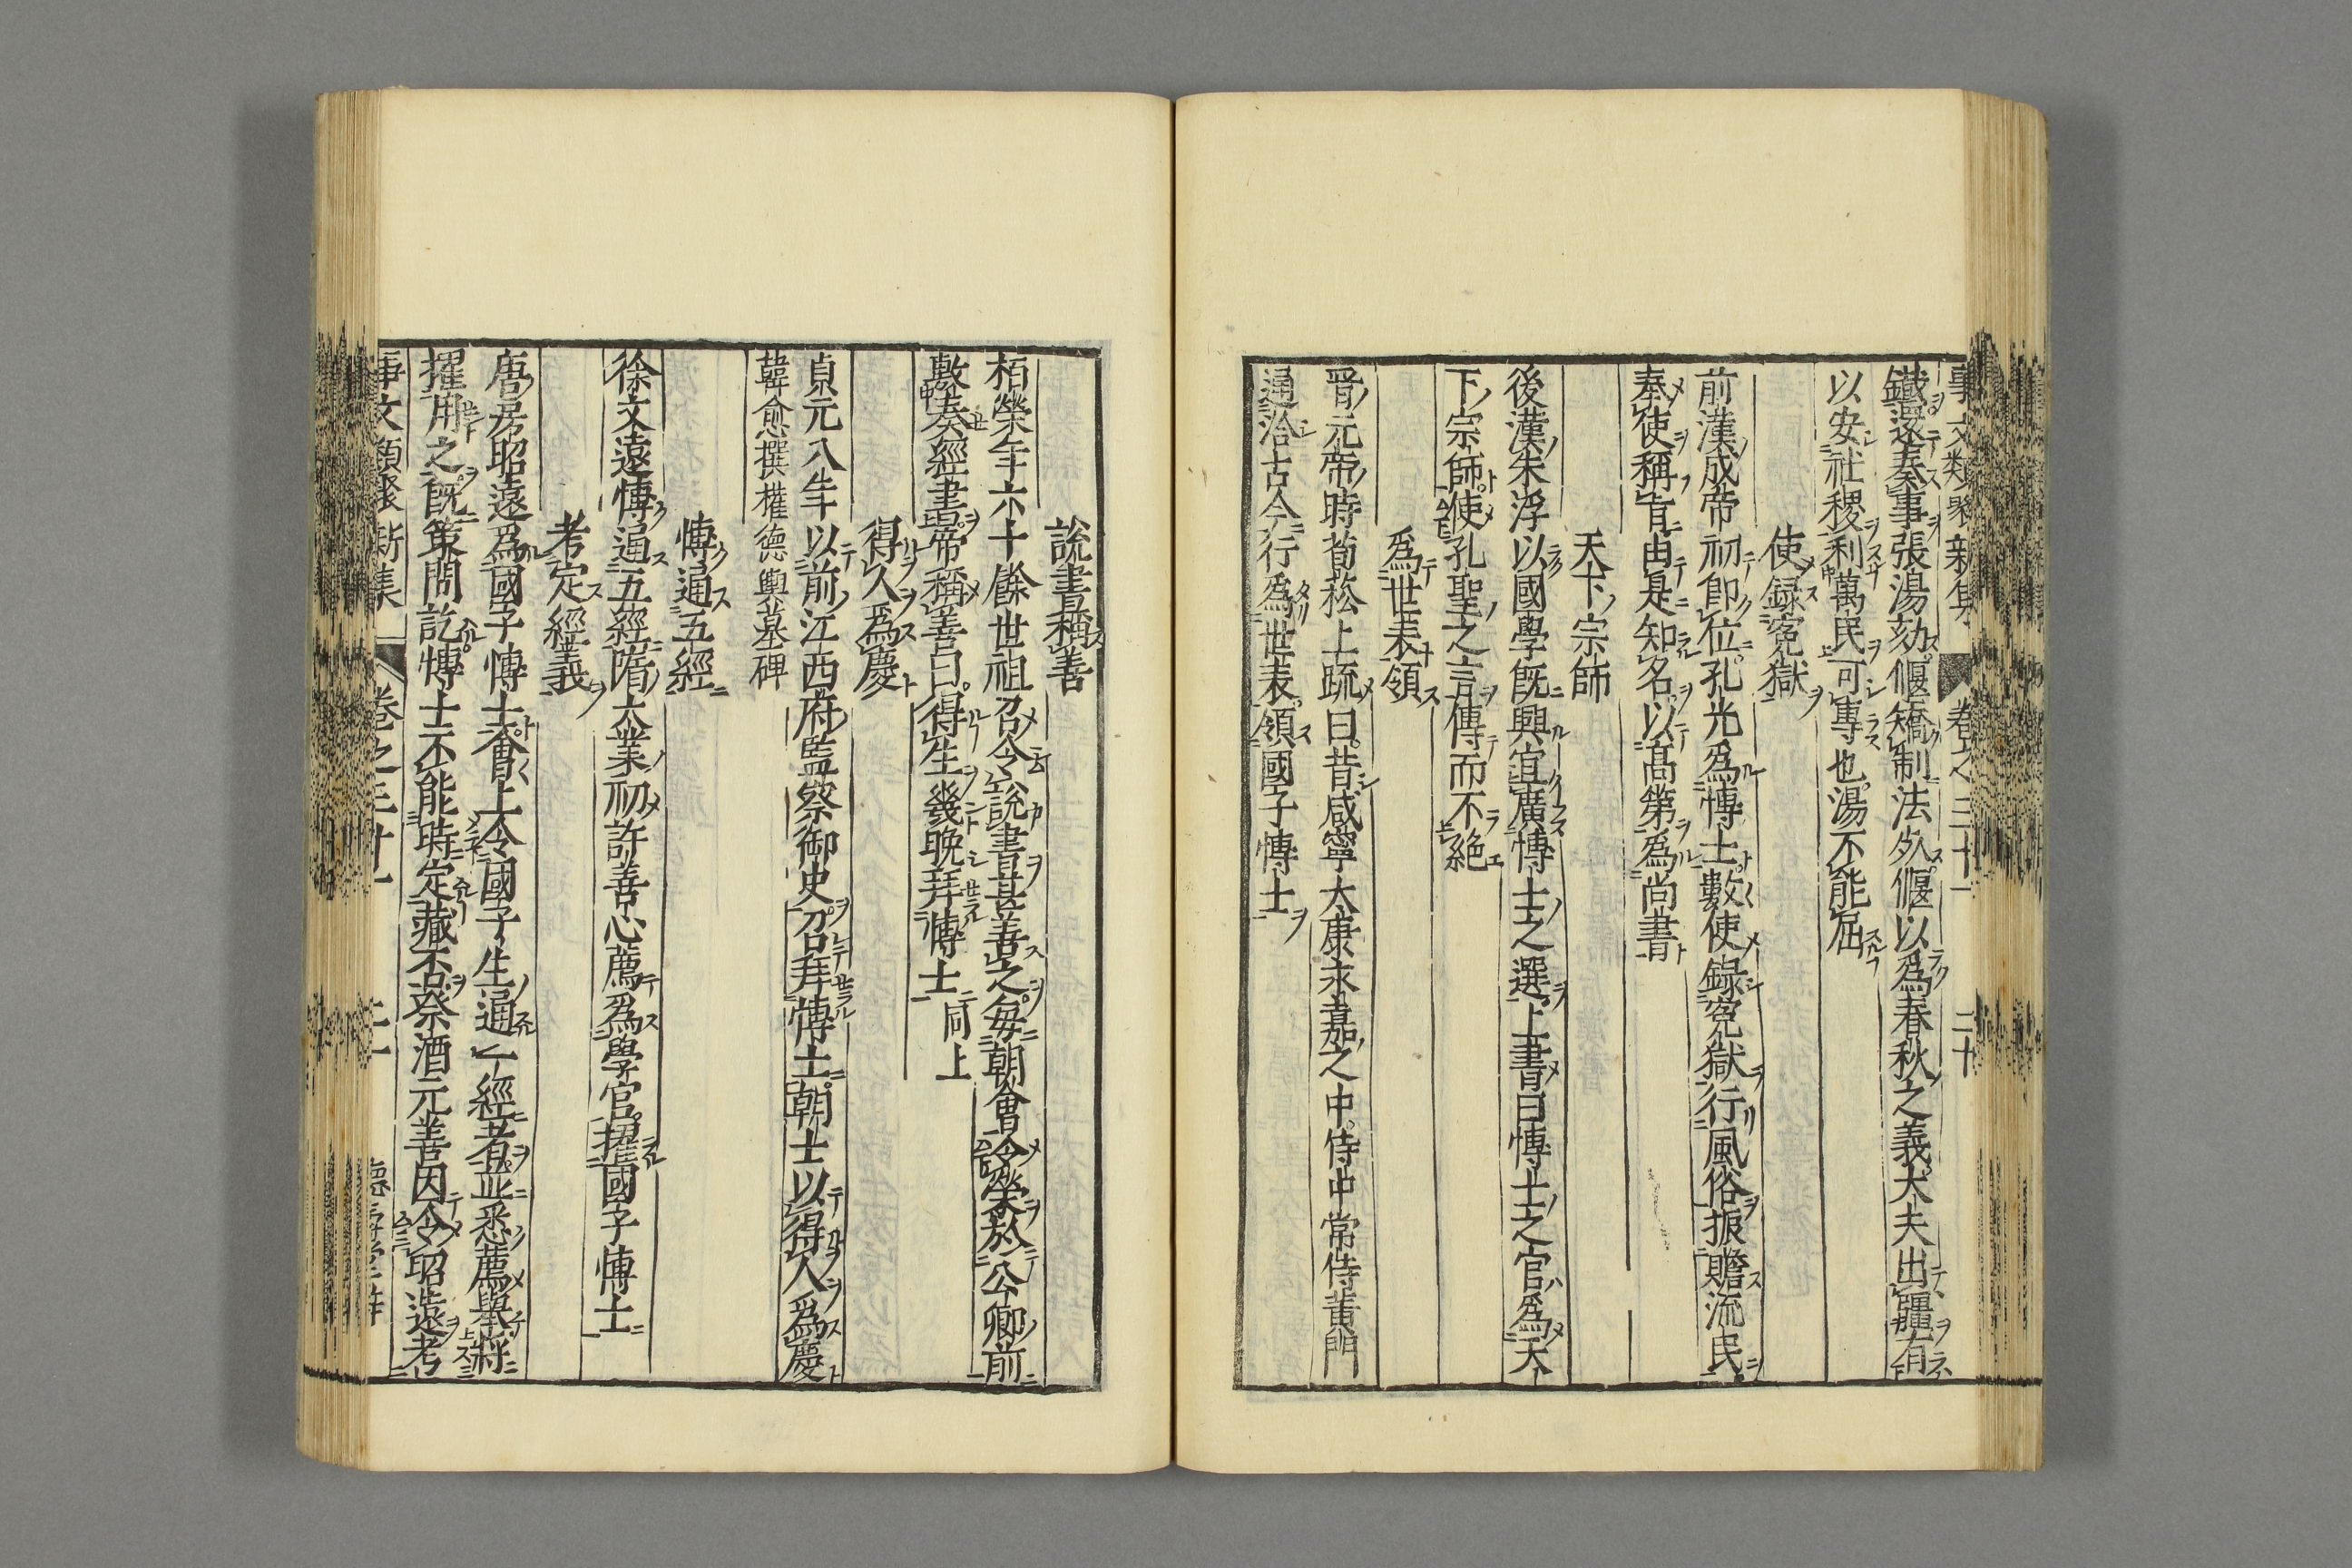 事文類聚新集 卷之三十一 二十
鐵還奏事張湯劾偃矯制法死偃以爲春秋之義大夫出疆有
以安社稷利萬民可專也湯不能屈
使録寃獄
前漢成帝初即位孔光爲博士數使錄寃獄行風俗振贍流民
奉使稱旨由是知名以高第爲尚書
天下宗師
後漢朱浮以國學既興宜廣博士之選上書曰博士之官爲天
下宗師使孔聖之言傳而不絶
爲世表領
晉元帝時荀崧上疏曰昔咸寧太康永嘉之中侍中常侍黄門
通洽古今行爲世表領國子博士
說書稱善
栢榮年六十餘世祖召令說書甚善之每朝會令榮於公卿前
敷奏經書帝稱善曰得生幾晩拜博士 同上
得人爲慶
貞元八年以前江西府監察御史召拜博士朝士以得人爲慶
韓愈撰權德輿墓碑
博通五經
徐文遠博通五經隋大業初許善心薦爲學官擢國子博士
考定經義
唐房昭遠爲國子博士會上令國子生通一經者並悉薦舉將
擢用之既策問訖博士不能時定藏否祭酒元善因令昭遠考
事文類聚新集 卷之三十一